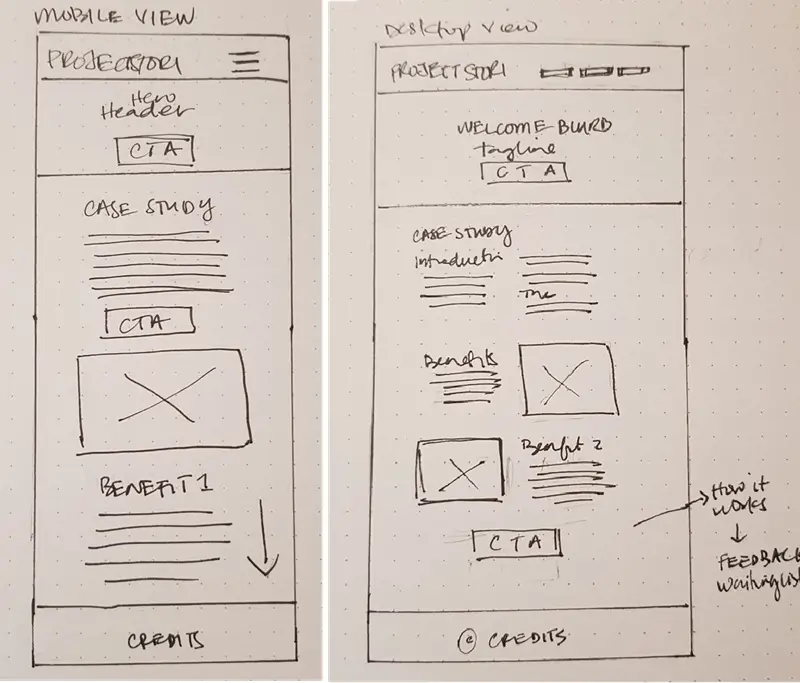 MOBILE VIEW
PROJECTSTORI
Hero
Header
CTA
CASE STUDY
CTA
BENEFIT 1
CREDITS
Desktop View
PROJECT STORI
WELCOME BLURB
tagline
CTA
CASE STUDY
Introducti
The
Benefits
Benefit 2
CTA
How it
works
FEEDBACK
waitinglist
© CREDITS